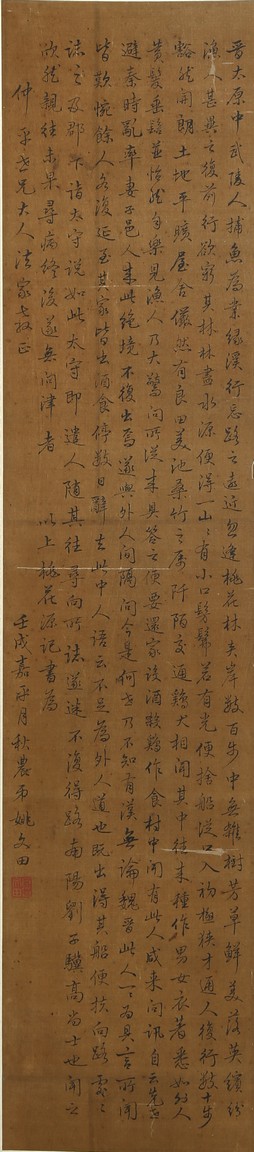 晉太原中武陵人捕魚為業緣溪行忘路之遠近忽逢桃花林夾岸數百步中無雜樹芳草鮮美落英繽紛
漁人甚異之復前行欲窮其林林盡水源便得一山山有小口髣髴若有光便捨船從口入初極狹才通人復行數十步
豁然開朗土地平曠屋舍儼然有良田美池桑竹之屬阡陌交通鷄犬相聞其中往來種作男女衣著悉如外人
黃髮垂髫並怡然自樂見漁人乃大驚問所從來具答之便要還家設酒殺鷄作食村中聞有此人咸來問訊自云先世
避秦時亂率妻子邑人來此絕境不復出焉遂與外人間隔問今是何世乃不知有漢無論魏晉此人一一為具言所聞
皆歎惋餘人各復延至其家皆出酒食停數日辭去此中人語云不足為外人道也既出得其船便扶向路處處
誌之及郡下詣太守說如此太守即遣人隨其往尋向所誌遂迷不復得路南陽劉子驥高尚士也聞之
欣然親往未果尋病終後遂無問津者 以上桃花源記書為
仲平世兄大人法家教正
壬戌嘉平月秋農弟姚文田